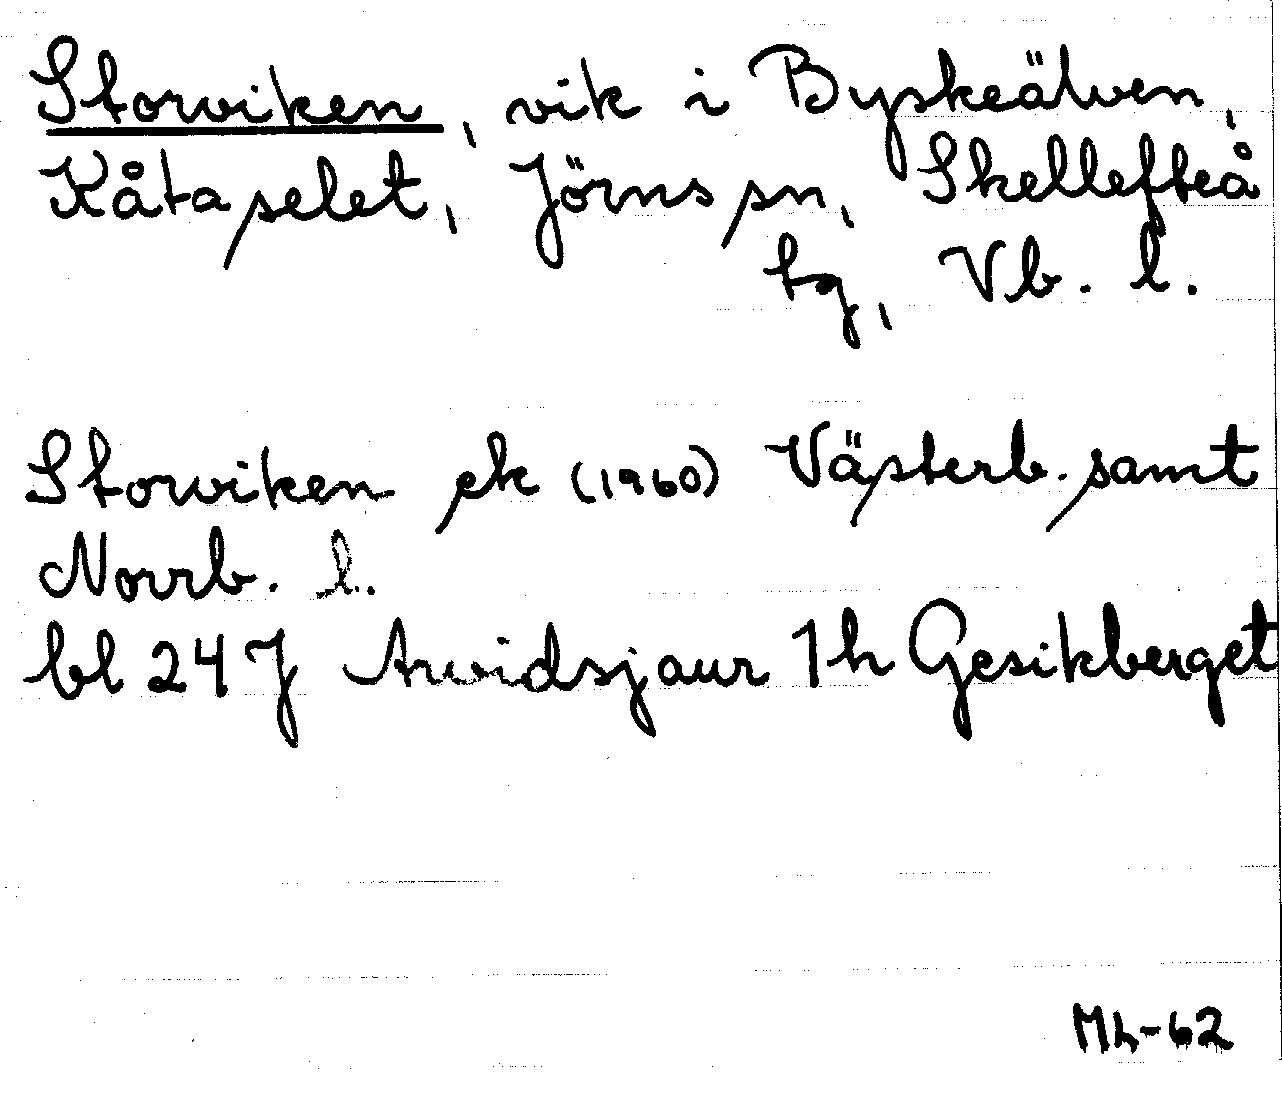 Storviken, vik i Byskeälven,
Kåtaselet, Jörns sn, Skellefteå
tg, Vb. l.
Storviken ek (1960) Västerb. samt
Norrb. l.
bl 24 J Arvidsjaur 1h Gesikberget
Mh-62